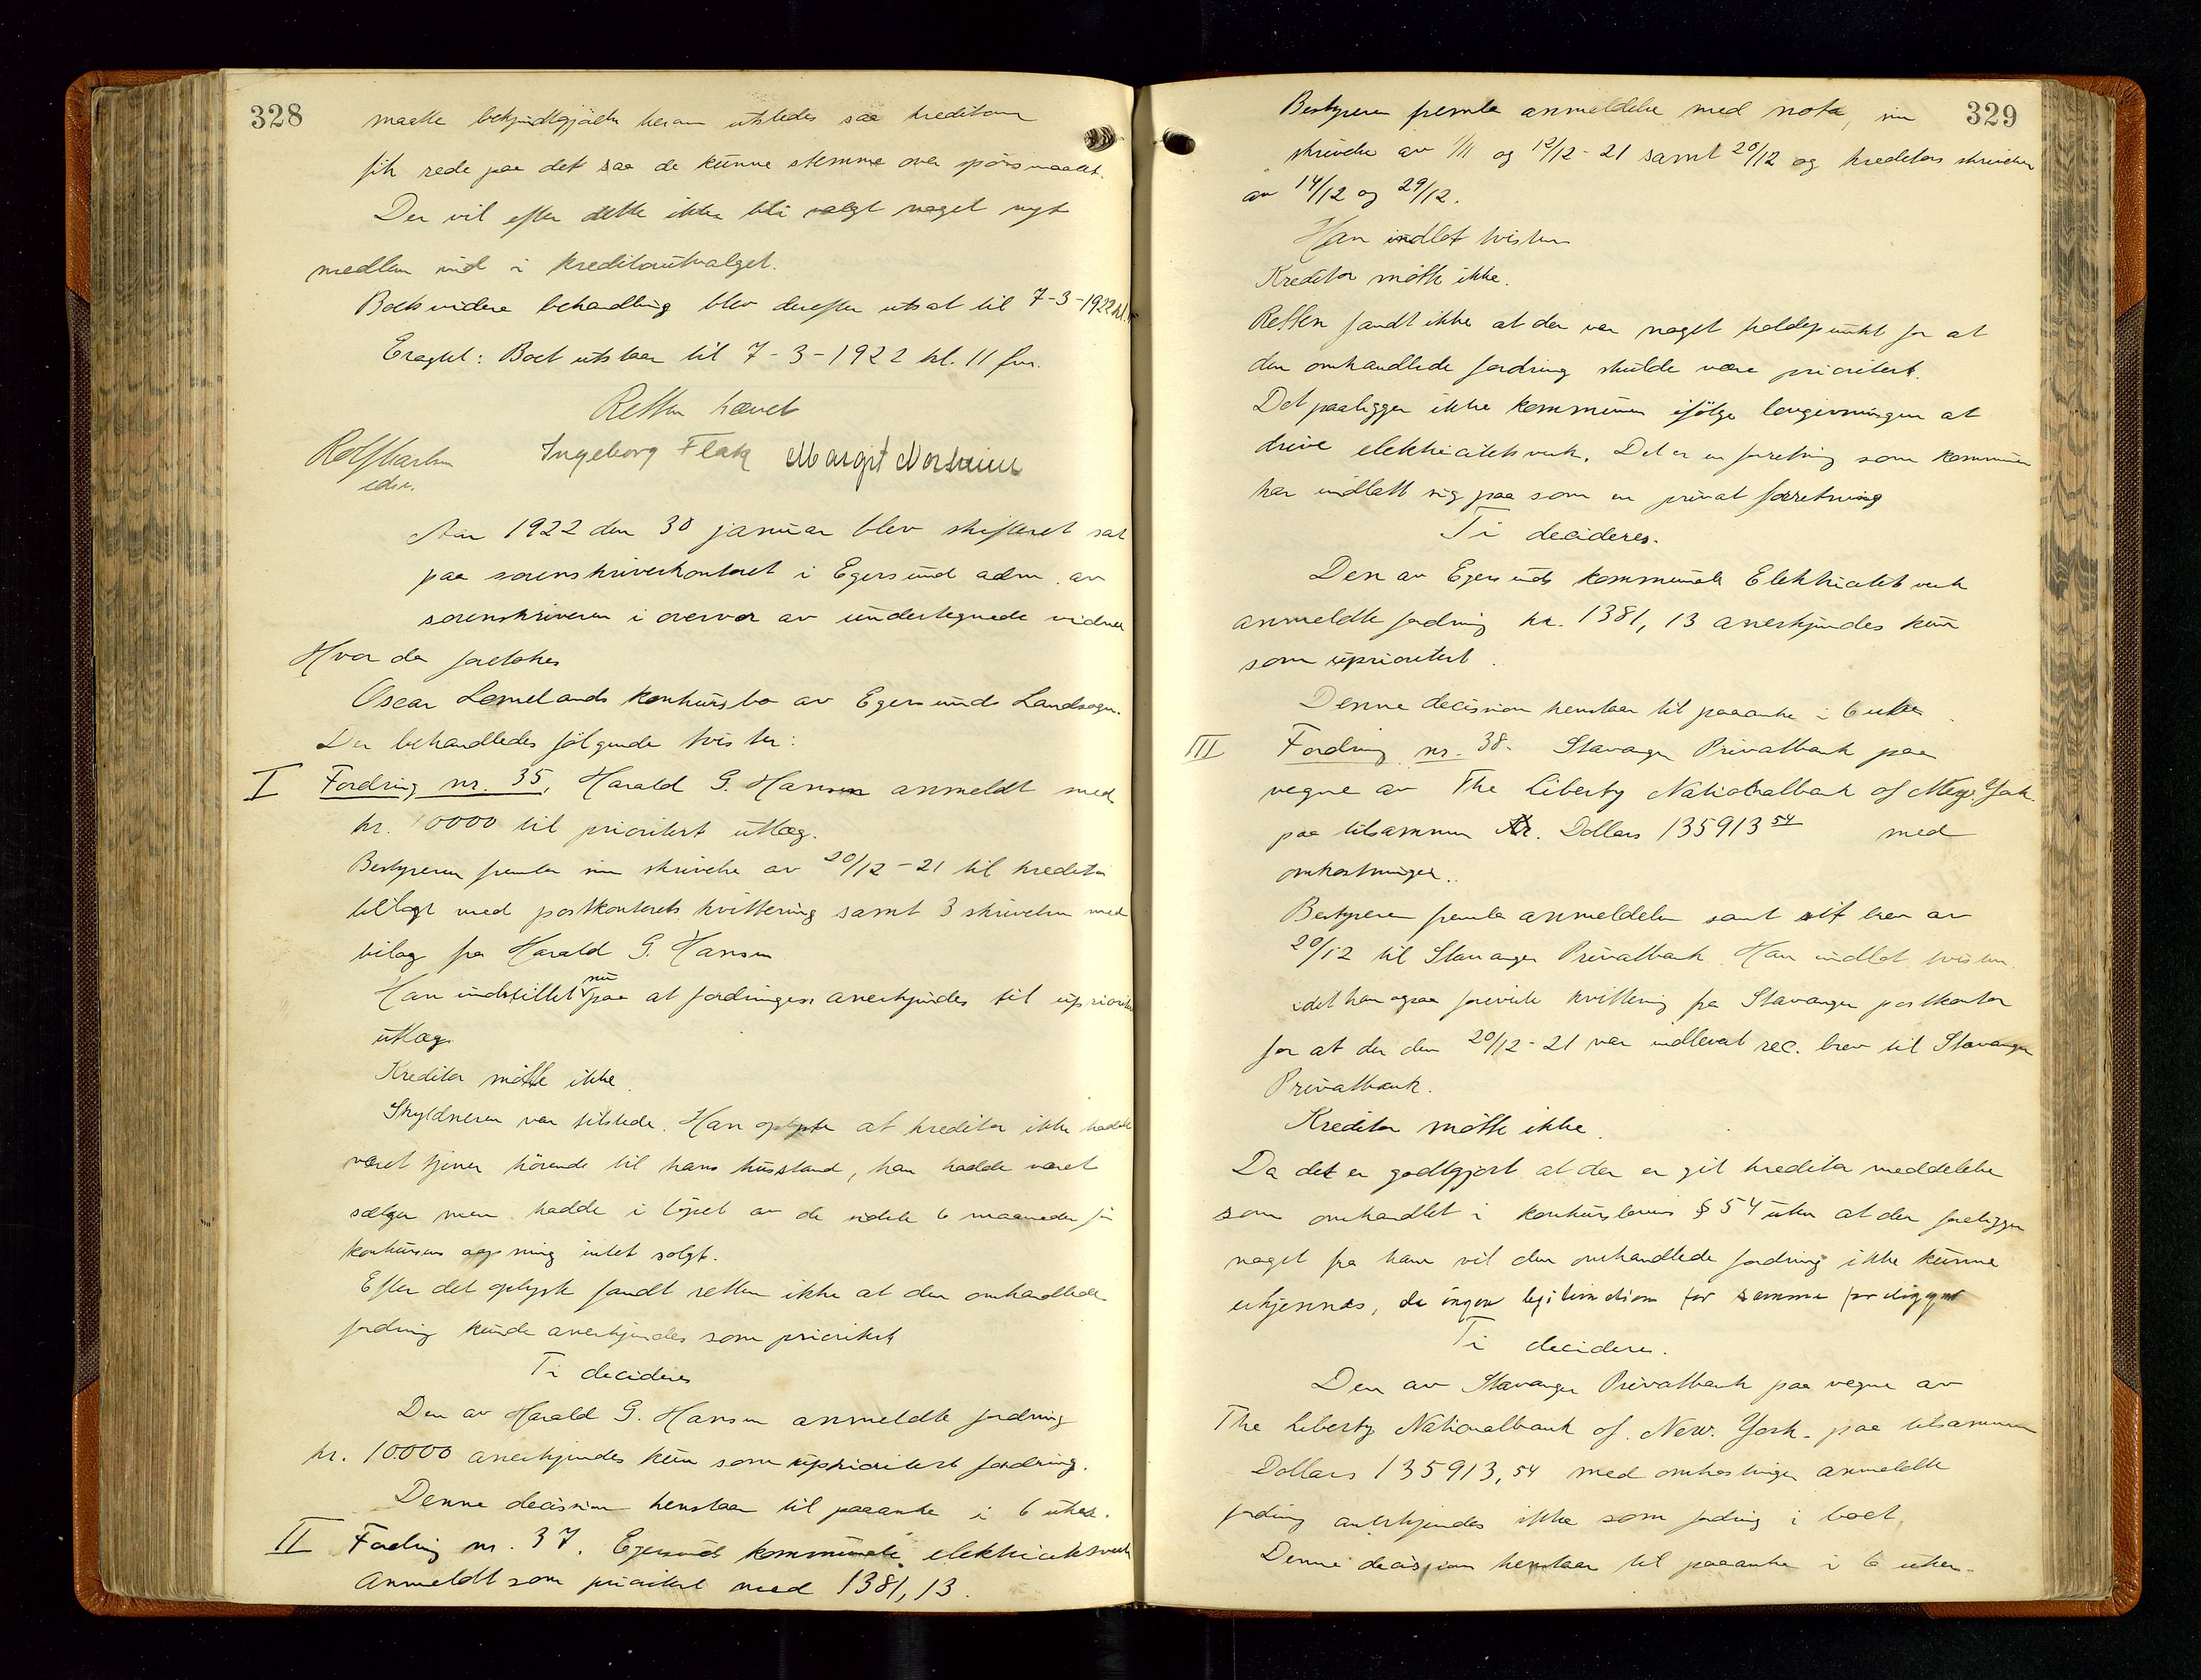 328
maatte bekjendtgjørelse herom utstedes saa kreditorene
fik rede paa det saa de kunne stemme over spørsmaalet.
Der vil efter dette ikke bli valgt noget nyt
medlem ind i kreditorutvalget.
Boets videre behandling blev derefter utsat til 7-3-1922 kl. 11
Eragtet: Boet utstaar til 7-3-1922 kl. 11 fm.
Retten hævet
Ingeborg Flak Margit
edsv.
Aar 1922 den 30 januar blev skifteret sat
paa sorenskriverkontoret i Egersund adm. av
sorenskriveren i overvær av undertegnede vidner
Hvor da foretokes
Oscar Lomelands konkursbo av Egersunds Landsogn.
Der behandledes følgende tvister:
I Fordring nr. 35, Harald G. Hansen anmeldt med
kr. 10000 til prioritert utlæg.
Bestyreren fremla sin skrivelse av 20/12-21 til kreditor
tillagt med postkontorets kvittering samt 3 skrivelser med
bilag fra Harald G. Hansen
Han indstillet nu paa at fordringen anerkjendes til uprioritert
utlæg.
Kreditor møtte ikke.
Skyldneren var tilstede. Han oplyste at kreditor ikke hadde
været tjener hørende til hans husstand, han hadde været
sælger men hadde i løpet av de sidste 6 maaneder før
konkursens aapning intet solgt.
Efter det oplyste fandt retten ikke at den omhandlede
fordring kunde anerkjendes som prioritert
Ti decideres
Den av Harald G. Hansen anmeldte fordring
kr. 10.000 anerkjendes kun som uprioritert fordring.
Denne decision henstaar til paaanke i 6 uker.
II Fordring nr. 37. Egersunds kommunale elektricitetsverk
anmeldt som prioritert med 1381,13.
329
Bestyreren fremla anmeldelse med nota, sin
skrivelse av 1/11 og 12/12-21 samt 20/12 og kreditors skrivelser
av 14/12 og 29/12.
Han indlot tvisten
Kreditor møtte ikke.
Retten fandt ikke at der var noget holdepunkt for at
den omhandlede fordring skulde være prioritert.
Det paaligger ikke kommunen ifølge lovgivningen at
drive elektricitetsverk. Det er en forretning som kommunen
har indlatt sig paa som en privat forretning
Ti decideres.
Den av Egersunds kommunale Elektricitetsverk
anmeldte fordring kr. 1381,13 anerkjendes kun
som uprioritert.
Denne decision henstaar til paaanke i 6 uker.
III Fordring nr. 38. Stavanger Privatbank paa
vegne av The Liberty Nationalbank of New York
paa tilsammen Kr. Dollars 135913 54 med
omkostninger.
Bestyreren fremla anmeldelsen samt sit brev av
20/12 til Stavanger Privatbank. Han indlot tvisten
idet han ogsaa foreviste kvittering fra Stavanger postkontor
for at der den 20/12-21 var indlevert rec. brev til Stavanger
Privatbank.
Kreditor møtte ikke.
Da det er godtgjort at der er git kreditor meddelelse
som omhandlet i konkurslovens § 54 uten at der foreligger
noget fra ham vil den omhandlede fordring ikke kunne
erkjennes, da ingen legitimation for samme foreligger
Ti decideres.
Den av Stavanger Privatbank paa vegne av
The Liberty Nationalbank of New. York. paa tilsammen
Dollars 135913,54 med omkostninger anmeldte
fordring anerkjendes ikke som fordring i boet.
Denne decision henstaar til paaanke i 6 uker.